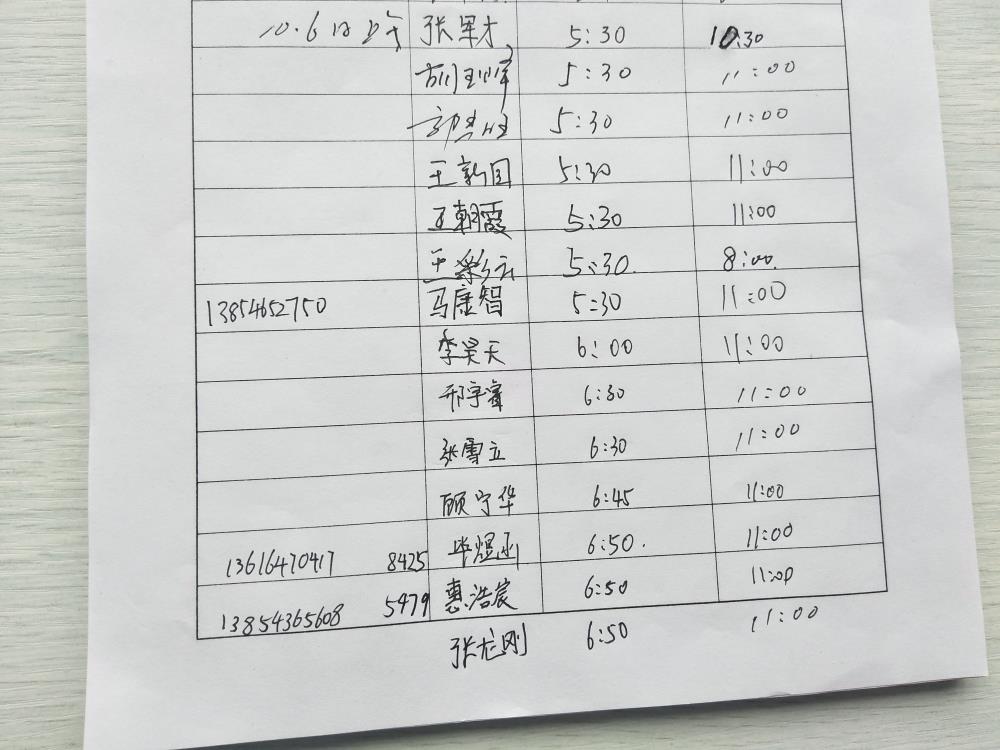 10.6日晚 张军才 5:30 10:30
5:30 11:00
5:30 11:00
王新国 5:30 11:00
王朝霞 5:30 11:00
王彩云 5:30. 8:00.
13854652750 马康智 5:30 11:00
李昊天 6:00 11:00
邢宇睿 6:30 11:00
张雪立 6:30 11:00
顾守华 6:45 11:00
13616470417 8425 毕煜函 6:50. 11:00
13854365608 5479 惠浩宸 6:50 11:00
张龙刚 6:50 11:00